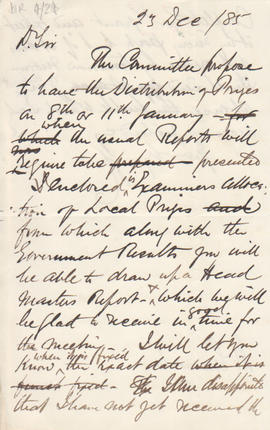 23 Dec /85
Dr Sir
The Committee propose
to have the Distribution of Prizes
on 8th or 11th January - for
when
which the usual Reports will
require to be prepared presented
I enclosed Examiners alloca-
tion of Local Prizes and
from which along with the
Government Results you will
be able to draw up a Head
Masters Report - which we will
be glad to receive in good time for
the meeting - I will let you
know when you fixed the exact date when it is
fixed - The I am disappointed
that I have not yet received the